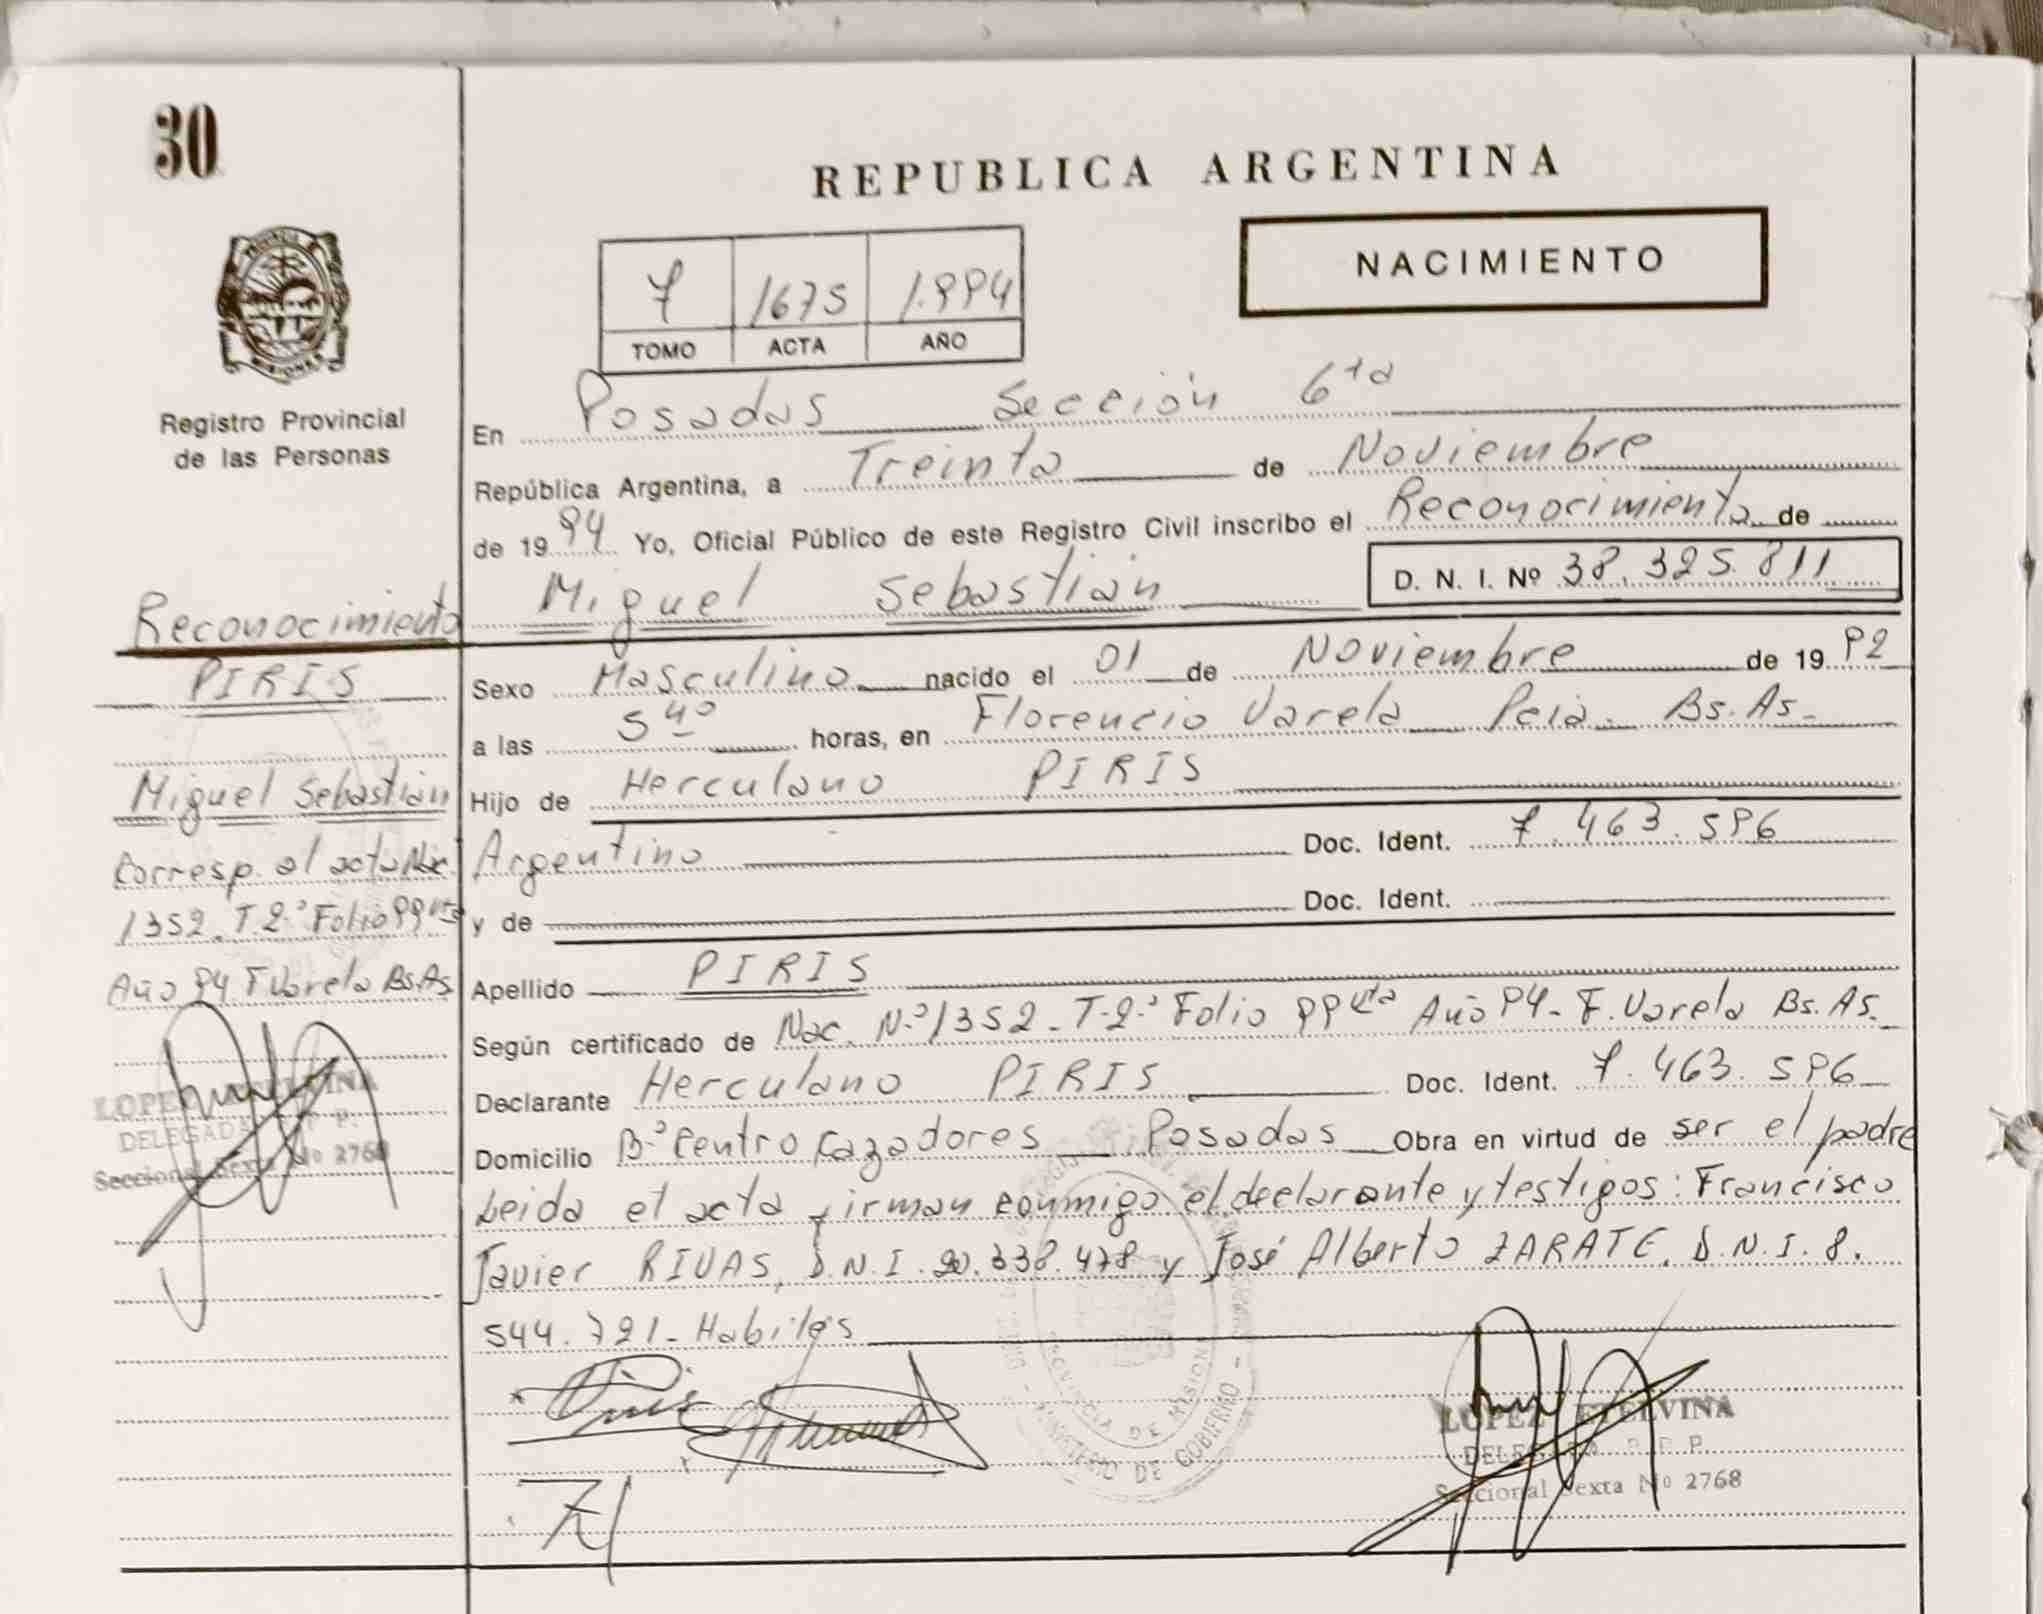 30
REPUBLICA ARGENTINA
NACIMIENTO
7 1675 1.994
TOMO ACTA AÑO
Registro Provincial
de las Personas
En Posadas Sección 6ta
República Argentina, a Treinta de Noviembre
de 1994 Yo, Oficial Público de este Registro Civil inscribo el Reconocimiento de
Miguel Sebastián D. N. I. Nº 38.325.811
Reconocimiento
PIRIS
Miguel Sebastián
Corresp. al acta Nac.
1352. T.2º Folio 99 vta
Año 94 F. Varela Bs.As.
LOPEZ ETELVINA
DELEGADA R. P. P.
Seccional Sexta Nº 2768
Sexo Masculino nacido el 01 de Noviembre de 1992
a las 5 40 horas, en Florencio Varela Pcia. Bs. As.
Hijo de Herculano PIRIS
Argentino Doc. Ident. 7.463.596
y de Doc. Ident.
Apellido PIRIS
Según certificado de Nac. N.º 1352 - T-2º Folio 99 vta Año 94 - F. Varela Bs. As.
Declarante Herculano PIRIS Doc. Ident. 7.463.596
Domicilio Bº Centro Cazadores Posadas Obra en virtud de ser el padre
Leida el acta firman conmigo el declarante y testigos: Francisco
Javier RIVAS, D.N.I. 20.338.478 y José Alberto ZARATE, D.N.I. 8.
544.721 - Habiles
PROVINCIA DE MISIONES
MINISTERIO DE GOBIERNO
LOPEZ ETELVINA
DELEGADA R. P. P.
Seccional Sexta Nº 2768